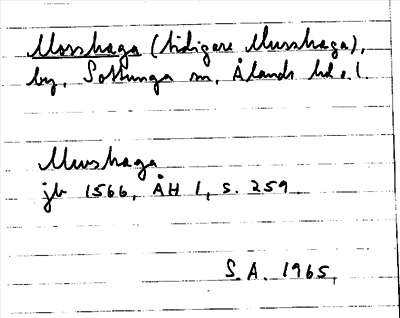 Mosshaga (tidigare Musshaga),
by, Sottunga sn, Ålands hd o. l.
Mushaga
jb 1566, ÅH 1, s. 259
S.A. 1965